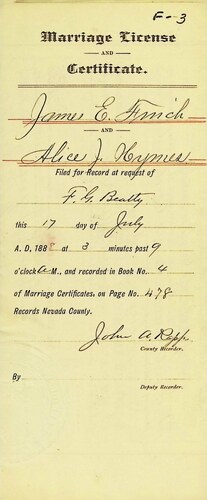 F-3
Marriage License
AND
Certificate.
James E. Finch
AND
Alice J. Hymes
Filed for Record at request of
F. G. Beatty
this 17 day of July
A. D., 188 at 3 minutes past 9
o'clock A M., and recorded in Book No. 4
of Marriage Certificates, on Page No. 478
Records Nevada County.
John A. Rapp
County Recorder.
By
Deputy Recorder.